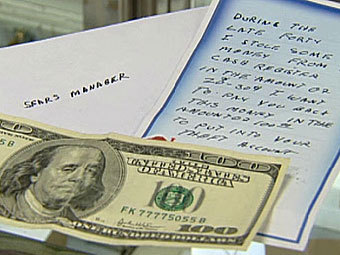 SEARS MANAGER
DURING THE
LATE FORTY
I STOLE SOME
MONEY FROM
CASH REGISTER
IN THE AMOUNT OF
I WANT
TO PAY YOU BACK
THIS MONEY IN THE
AMOUNT OF
TO PUT INTO YOUR
THEFT ACCOUNT
THE UNITED STATES OF AMERICA
100
FK 77775055 B
100